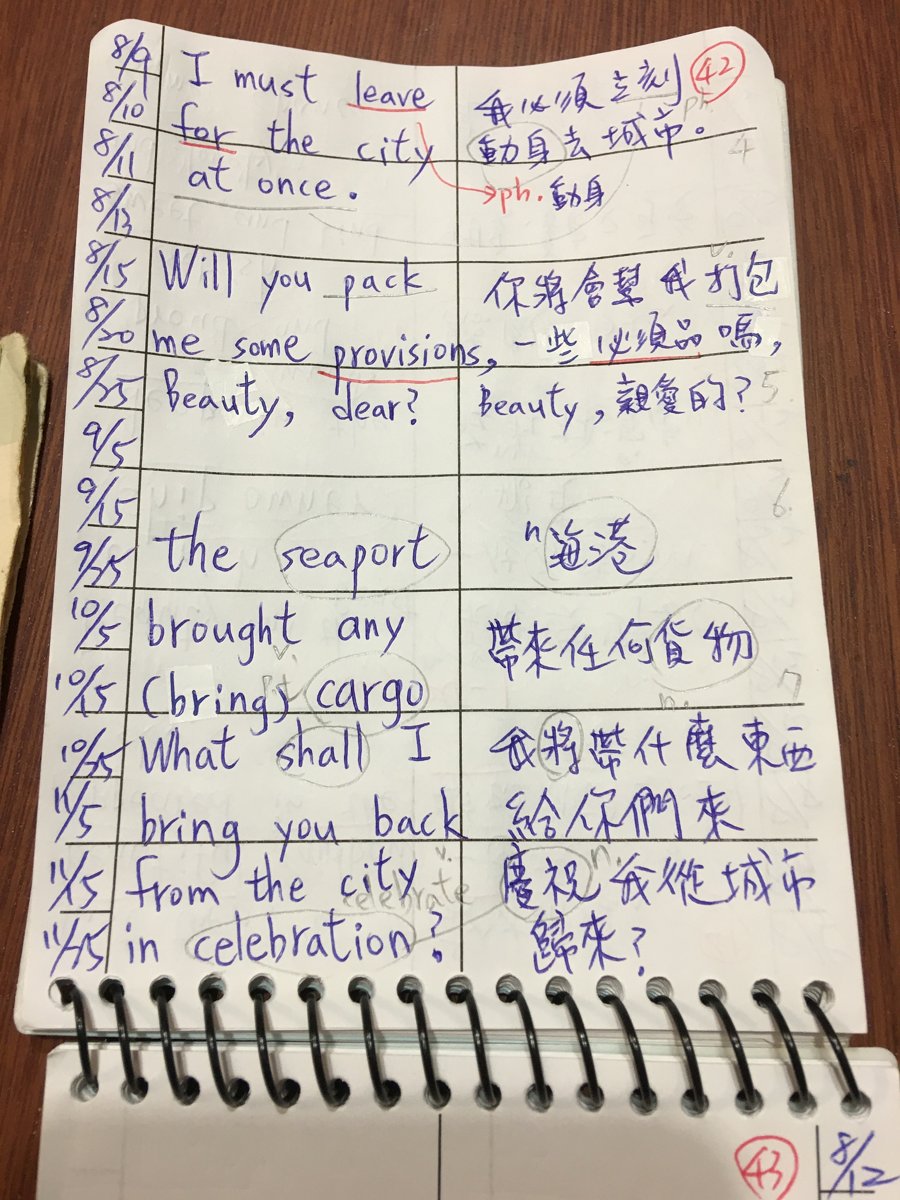 8/9
8/10
8/11
8/13
8/15
8/20
8/25
9/5
9/15
9/25
10/5
10/15
10/25
11/5
11/15
11/25
I must leave
for the city
at once.
我必須立刻
動身去城市。
ph. 動身
ph.
42
4
Will you pack
me some provisions,
Beauty, dear?
v.
你將會幫我打包
一些必須品嗎,
Beauty,親愛的?
5.
the seaport
n 海港
6.
brought any
v. pt.
(bring) cargo
帶來任何貨物
n.
7
What shall I
bring you back
from the city
v.
celebrate
in celebration?
我將帶什麼東西
給你們來
慶祝我從城市
n.
歸來?
43
8/12